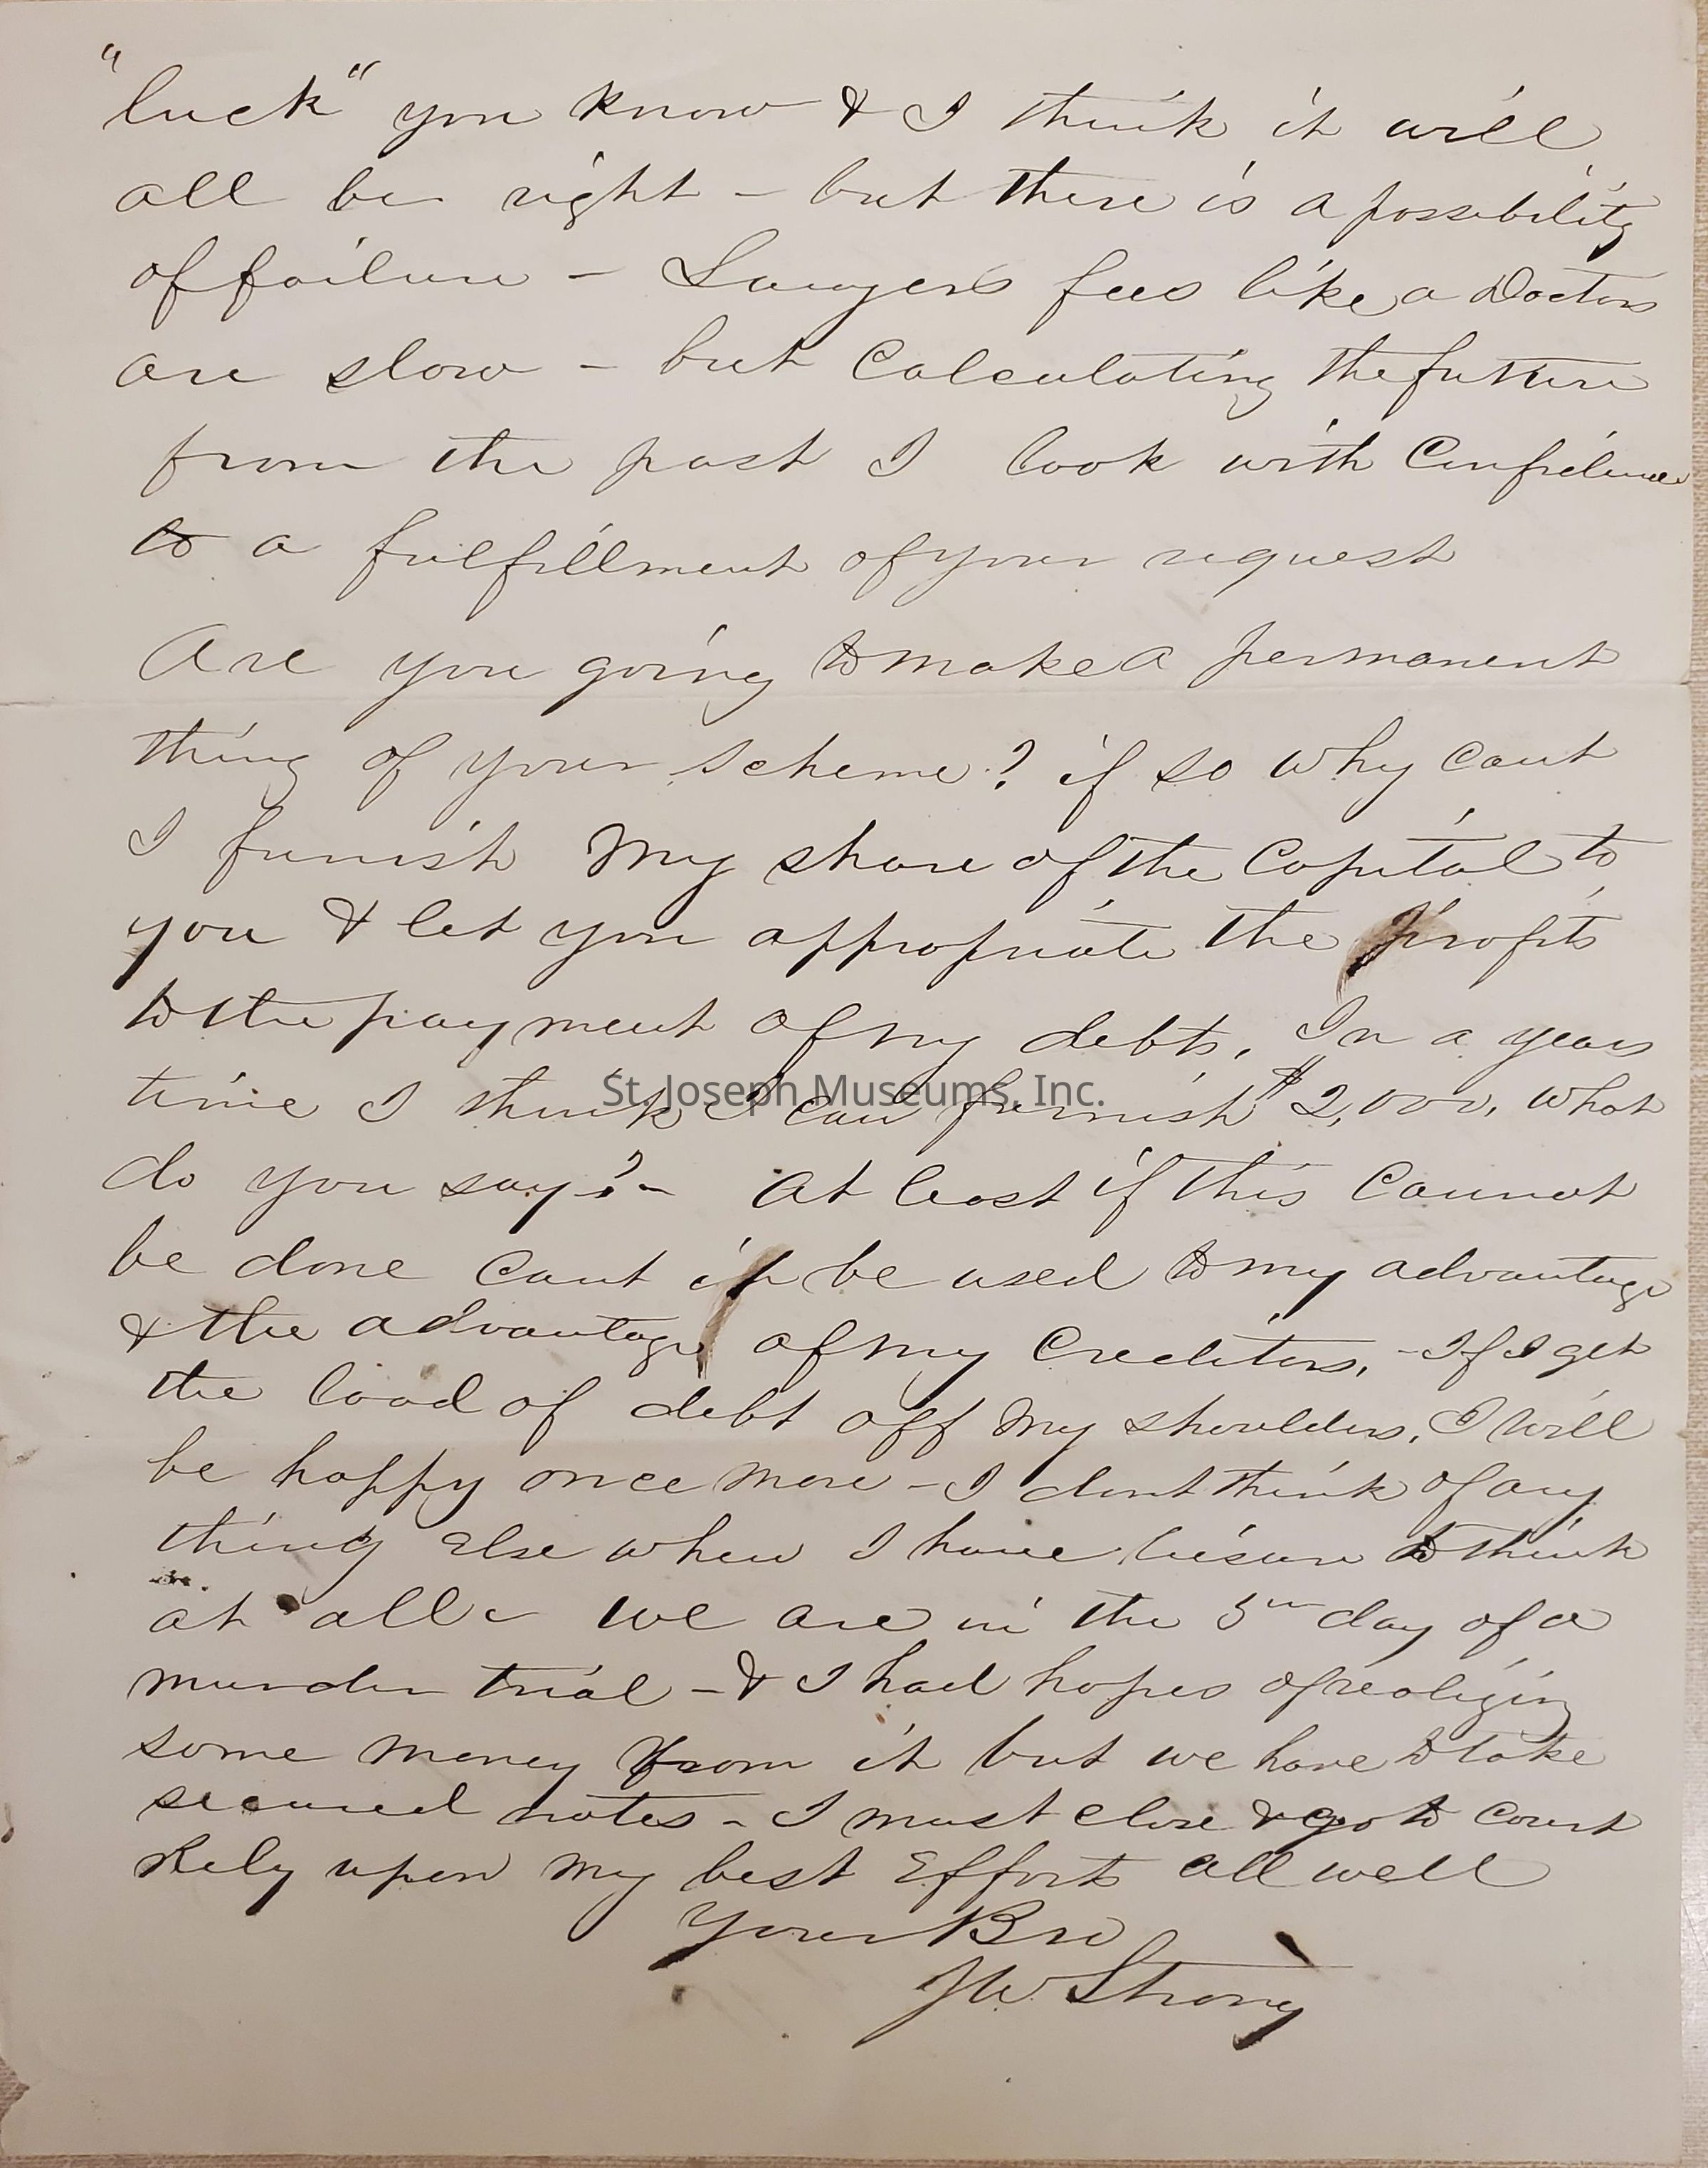 "luck" you know & I think it will
all be right - but there is a possibility
of failure - Lawyers fees like a Doctors
are slow - but Calculating the future
from the past I look with Confidence
to a fulfillment of your request
Are you going to make a permanent
thing of your scheme? if so why cant
I furnish my share of the Capital to
you & let you appropriate the Profits
to the payment of my debts, In a years
time I think I can furnish $2,000, what
St. Joseph Museums, Inc.
do you say? - At least if this Cannot
be done cant it be used to my advantage
& the advantage of my Creditors, - If I get
the load of debt off my shoulders, I will
be happy once more - I dont think of any
thing Else when I have leisure to think
at all - We are in the 5th day of a
murder trial - & I had hopes of realizing
some money from it but we have to take
secured notes - I must close & go to Court
Rely upon my best Efforts all well
Your Bro
JW Strong